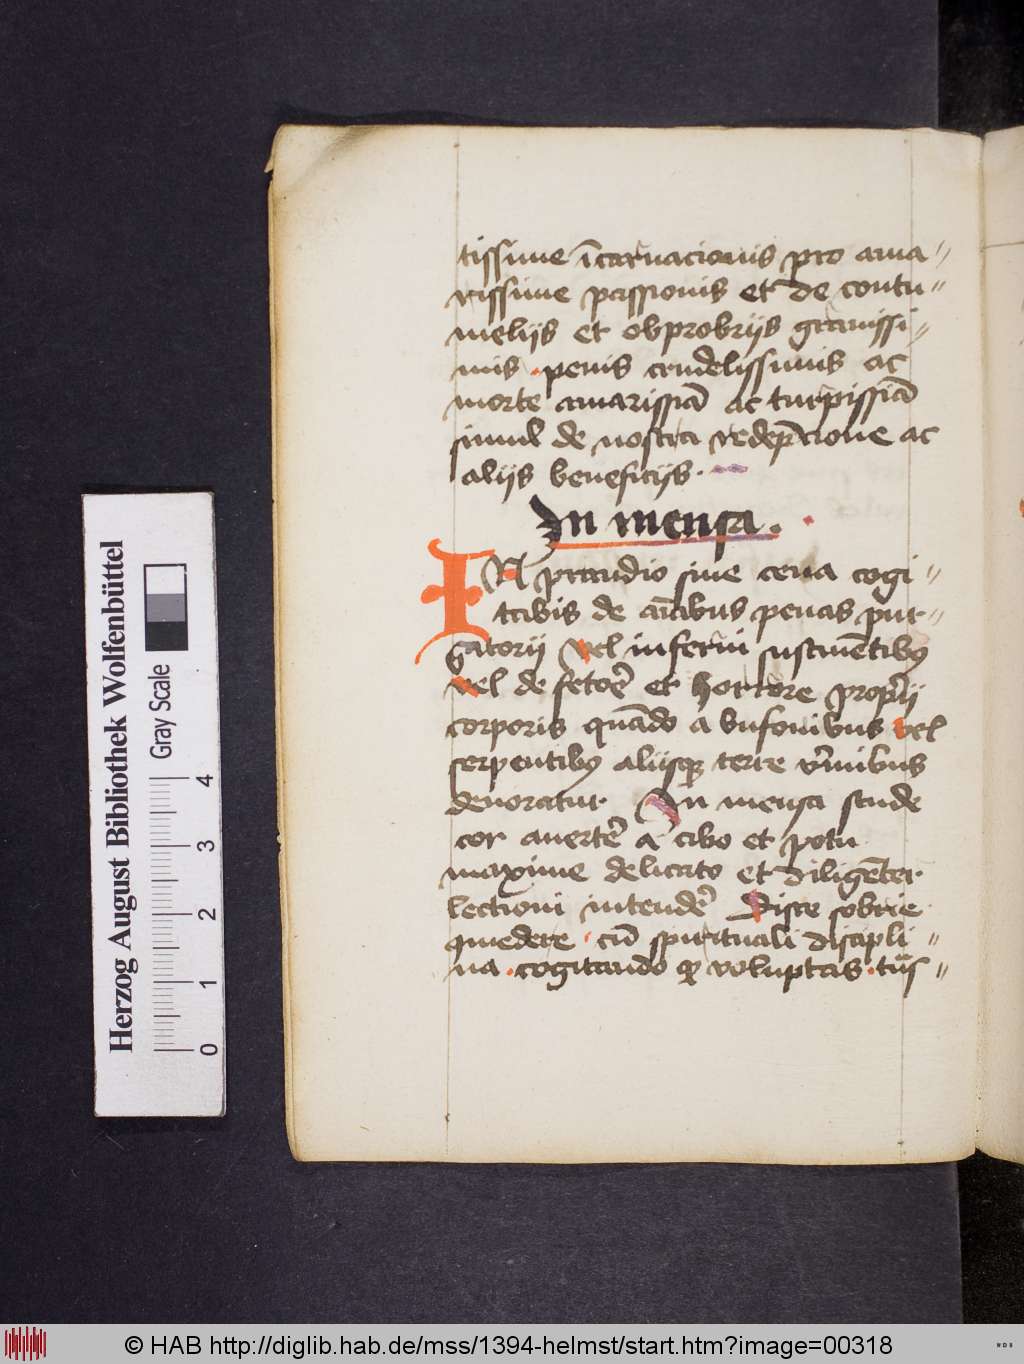 tissime īcarnacionis pro ama〃
rissime passionis et de contu〃
meliis et obprobriis grauissi〃
mis penis crudelissimis ac
morte amarissiā ac turpissiā
simul de nostra redēpcione ac
aliis beneficiis
In mensa.
IN prandio siue cena cogi〃
tabis de aīabus penas pur〃
gatorii vel inferni sustinētibꝫ
vel de fetoē et horrore proprii
corporis quādo a bufonibus vel
serpentibꝫ aliisqꝫ terre v̄mibus
deuoratur In mensa stude
cor auertē a cibo et potu
maxime delicato et diligēter
lectioni intendē Disce sobrie
quiedere cū spirituali discipli〃
na cogitando qꝫ voluptas
Herzog August Bibliothek Wolfenbüttel
Gray Scale
0 1 2 3 4
© HAB http://diglib.hab.de/mss/1394-helmst/start.htm?image=00318